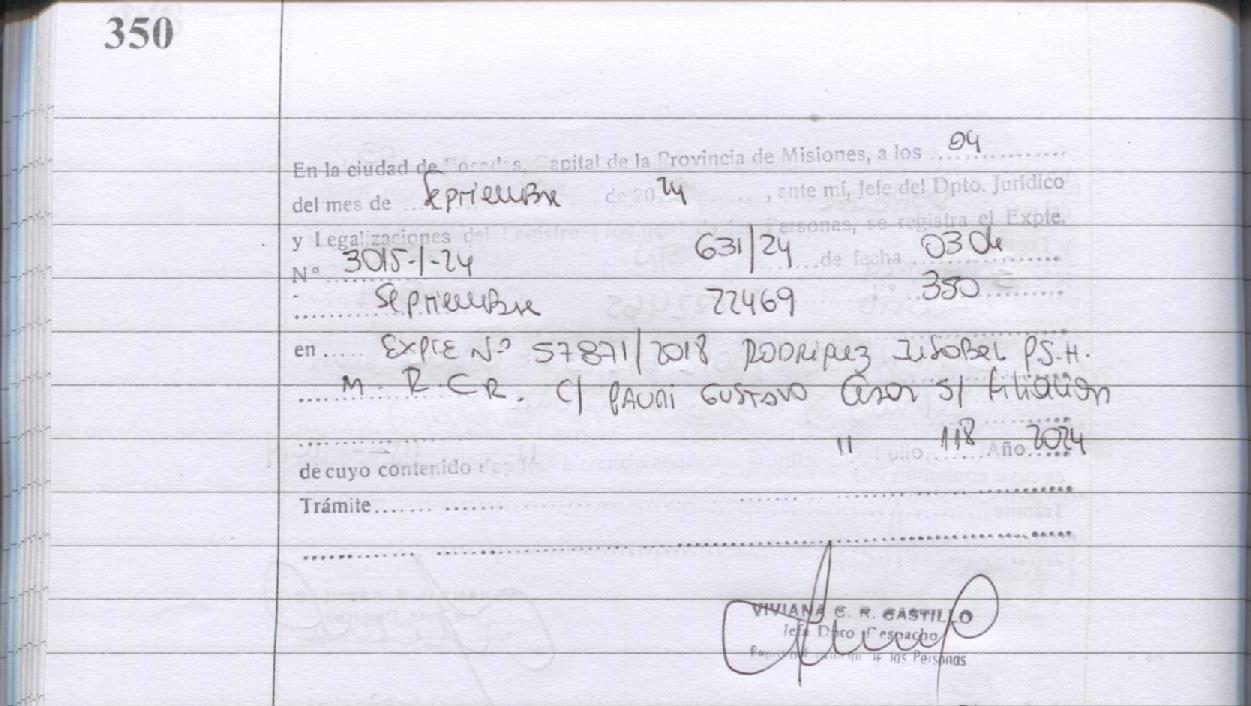 350
En la ciudad de Posadas, Capital de la Provincia de Misiones, a los 04
del mes de Septiembre de 20 24, ante mí, Jefe del Dpto. Jurídico
y Legalizaciones del Registro Provincial de las Personas, se registra el Expte.
N° 3015-I-24 631/24 de fecha 03 de
Septiembre 22469 350
en Expte Nº 57871/2018 Rodriguez Lisobel P.S.H.
M. R. C R. C/ Gustavo Cesar S/ Filiación
" Folio 118 Año 2024
de cuyo contenido doy
Trámite
VIVIANA C. R. CASTILLO
Jefa Dpto Despacho
de las Personas